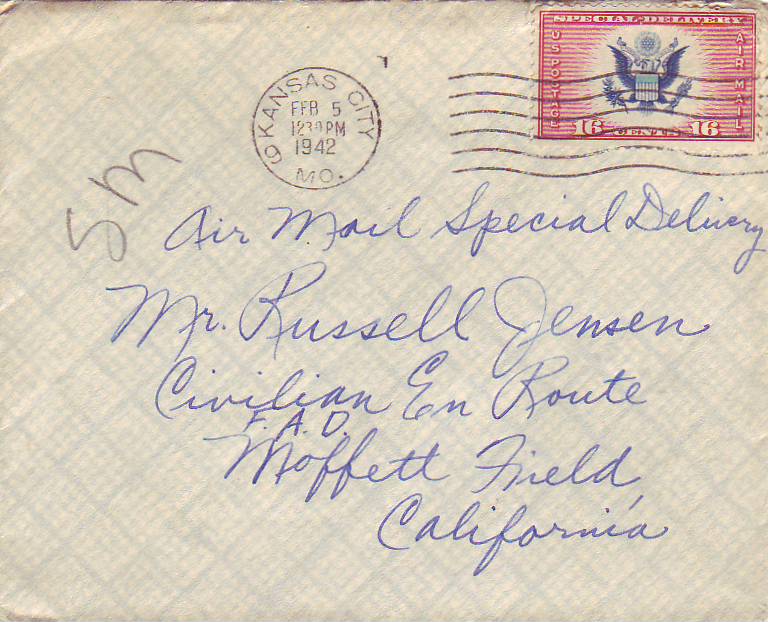 SPECIAL DELIVERY
U S POSTAGE
AIR MAIL
16 CENTS 16
KANSAS CITY
FEB 5
1230 PM
1942
MO.
9
5M
Air Mail Special Delivery
Mr. Russell Jensen
Civilian En Route
F. A. D.
Moffett Field,
California